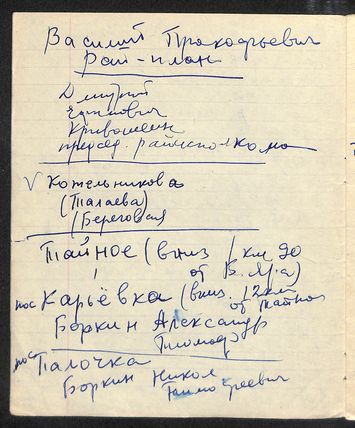 Василий Прокофьевич
Рай-план
Дмитрий
Ефимович
Кривошеин
председ. райисполкома
V Котельникова
(Талаева)
(Береговая
Тайное (вниз 1 км 90
от В. Яра)
пос Карьёвка (вниз 12 км
от Тайного
Боркин Александр
пос Палочка
Боркин Никол
Тимофеевич